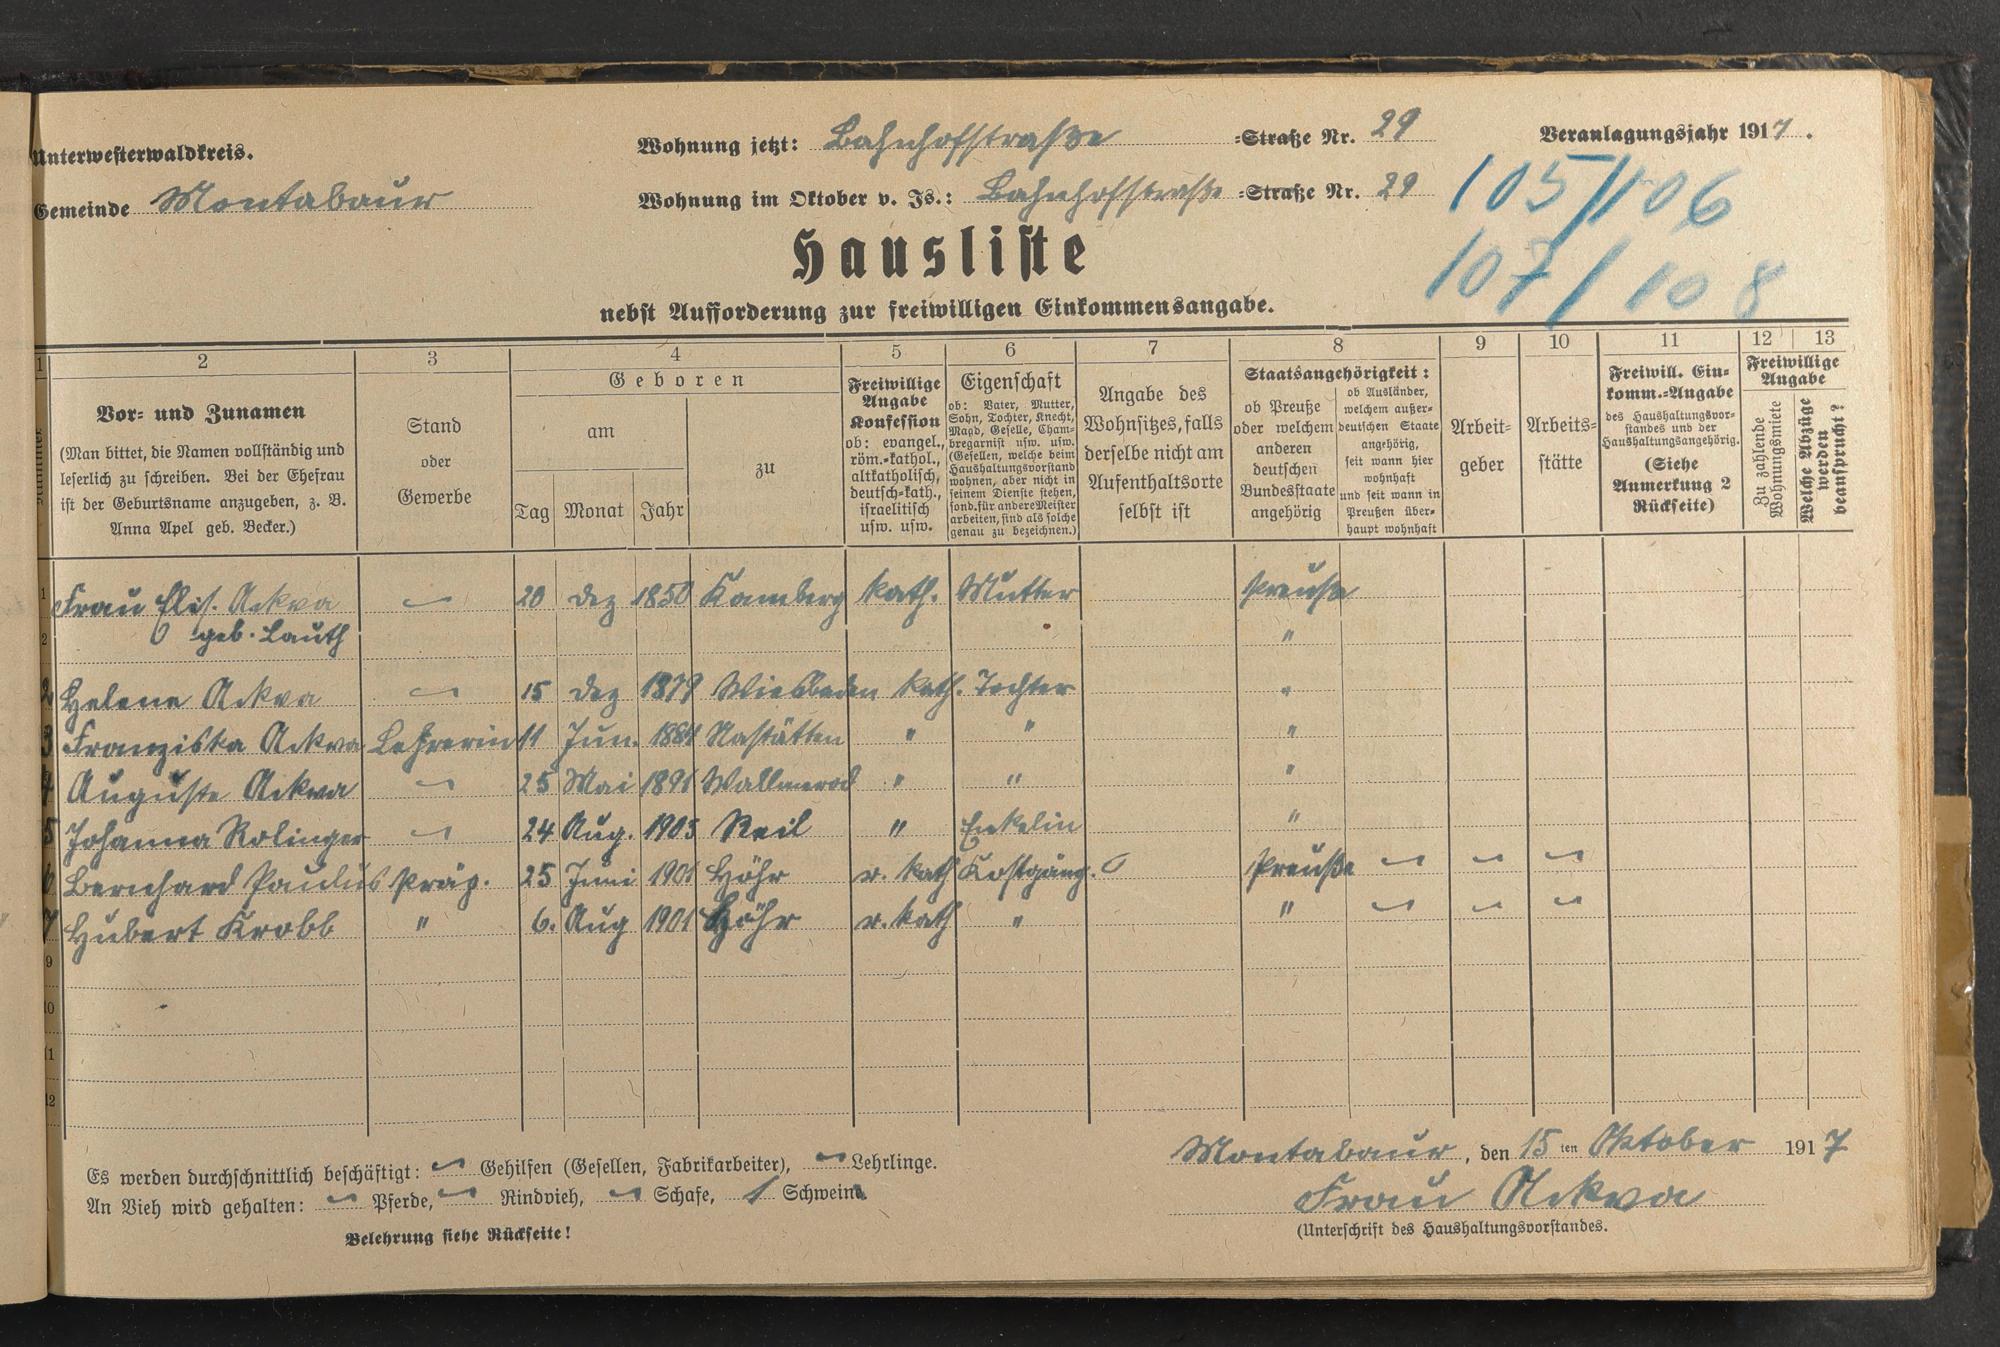 Unterwesterwaldkreis.
Gemeinde Montabaur
Wohnung jetzt: Bahnhofstraße =Straße Nr. 29
Wohnung im Oktober v. Js.: Bahnhofstraße =Straße Nr. 29
Veranlagungsjahr 1917.
105/106
107/108
Hausliste
nebst Aufforderung zur freiwilligen Einkommensangabe.
1 2 3 4 5 6 7 8 9 10 11 12 13
Nummer
Vor- und Zunamen
(Man bittet, die Namen vollständig und
leserlich zu schreiben. Bei der Ehefrau
ist der Geburtsname anzugeben, z. B.
Anna Apel geb. Becker.)
Stand
oder
Gewerbe
Geboren
am
zu
Tag Monat Jahr
Freiwillige
Angabe
Konfession
ob: evangel.,
röm.-kathol.,
altkatholisch,
deutsch-kath.,
israelitisch
usw. usw.
Eigenschaft
ob: Vater, Mutter,
Sohn, Tochter, Knecht,
Magd, Geselle, Cham-
bregarnist usw. usw.
(Gesellen, welche beim
Haushaltungsvorstand
wohnen, aber nicht in
seinem Dienste stehen,
sond. für andere Meister
arbeiten, sind als solche
genau zu bezeichnen.)
Angabe des
Wohnsitzes, falls
derselbe nicht am
Aufenthaltsorte
selbst ist
Staatsangehörigkeit:
ob Preuße
oder welchem
anderen
deutschen
Bundesstaate
angehörig
ob Ausländer,
welchem außer-
deutschen Staate
angehörig,
seit wann hier
wohnhaft
und seit wann in
Preußen über-
haupt wohnhaft
Arbeit-
geber
Arbeits-
stätte
Freiwill. Ein-
komm.-Angabe
des Haushaltungsvor-
standes und der
Haushaltungsangehörig.
(Siehe
Anmerkung 2
Rückseite)
Freiwillige
Angabe
Zu zahlende
Wohnungsmiete
Welche Abzüge
werden
beansprucht?
1 Frau Elis. Ackva – 20 Dez 1850 Kamberg kath. Mutter Preuße
2 geb. Lauth "
2 Helene Ackva – 15 Dez 1879 Wiesbaden kath. Tochter "
3 Franziska Ackva Lehrerin 11 Jun. 1884 Nastätten " " "
4 Auguste Ackva – 25 Mai 1891 Wallmerod " " "
5 Johanna Rolinger – 24 Aug. 1903 Reil " Enkelin "
6 Bernhard Paulus Präp. 25 Juni 1901 Höhr r. kath Kostgäng. Preuße – – –
7 Hubert Krobb " 6. Aug 1901 Höhr r. kath " " – – –
9
10
11
12
Es werden durchschnittlich beschäftigt: – Gehilfen (Gesellen, Fabrikarbeiter), – Lehrlinge.
An Vieh wird gehalten: – Pferde, – Rindvieh, – Schafe, 1 Schwein
Belehrung siehe Rückseite!
Montabaur, den 15ten Oktober 1917
Frau Ackva
(Unterschrift des Haushaltungsvorstandes.